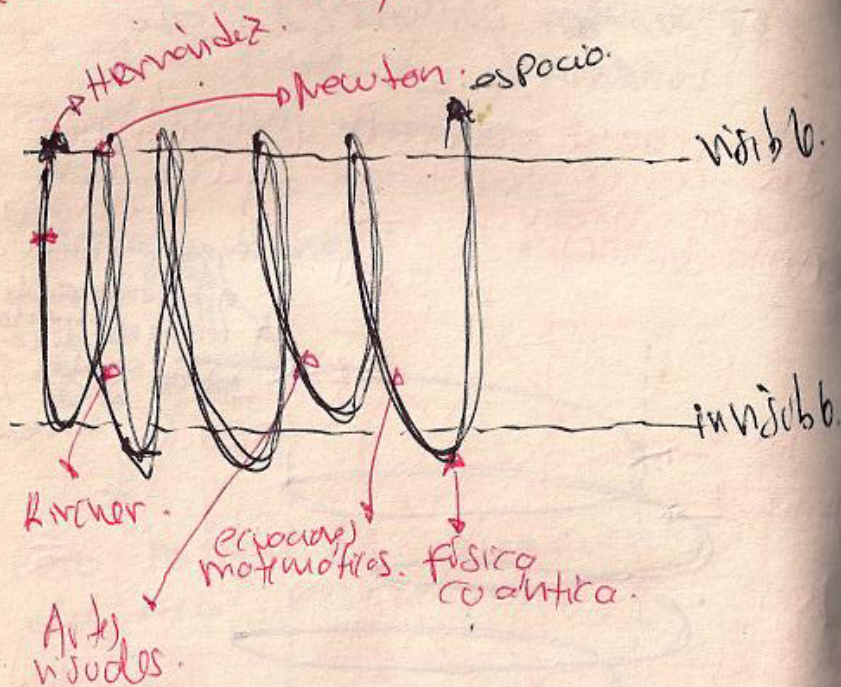 Hernández.
Newton.
espacio.
visible.
invisible.
Kircher.
ecuaciones
matemáticas.
física
cuántica.
Artes
visuales.